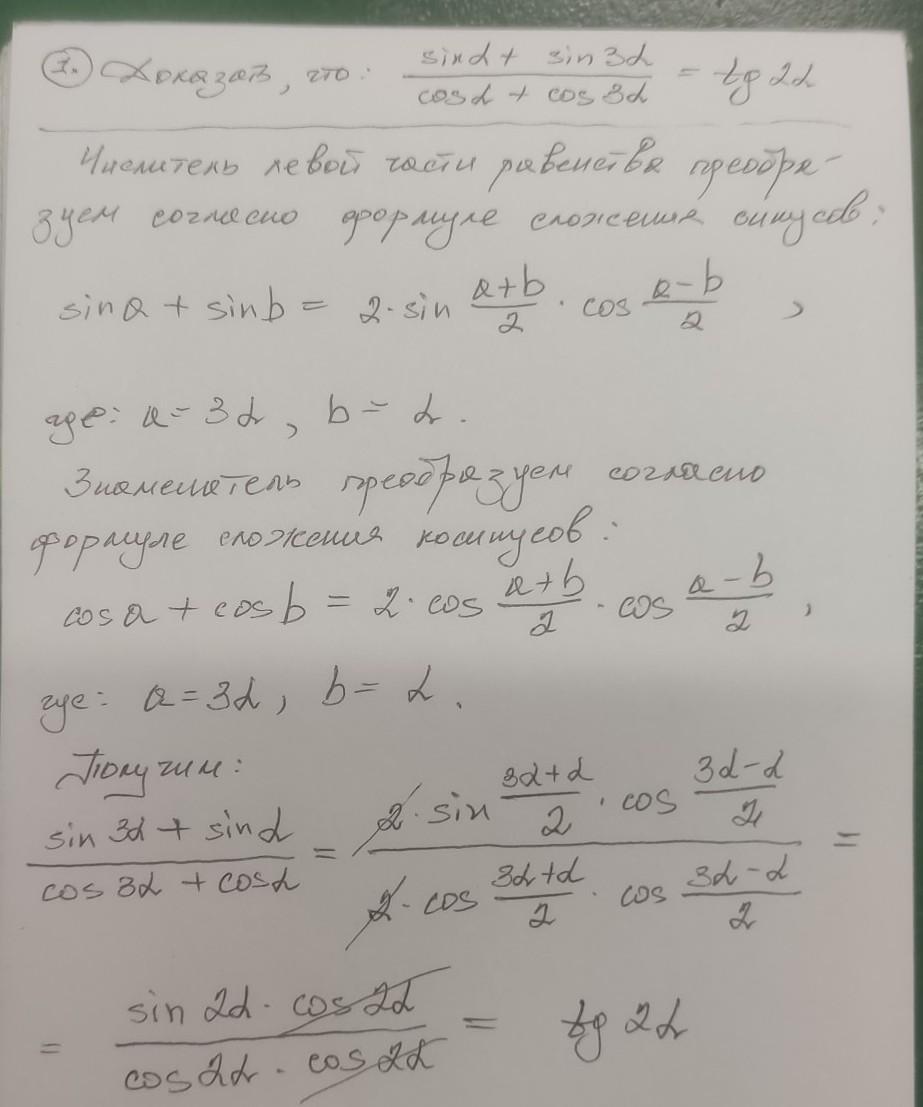 1. Доказать, что: (sinα + sin 3α)/(cosα + cos 3α) = tg 2α
Числитель левой части равенства преобра-
зуем согласно формуле сложения синусов:
sin a + sin b = 2·sin (a+b)/2 · cos (a-b)/2 ,
где: a = 3α, b = α.
Знаменатель преобразуем согласно
формуле сложения косинусов:
cos a + cos b = 2·cos (a+b)/2 · cos (a-b)/2 ,
где: a = 3α, b = α.
Получим:
(sin 3α + sin α)/(cos 3α + cosα) = (2·sin (3α+α)/2 · cos (3α-α)/2)/(2·cos (3α+α)/2 · cos (3α-α)/2) =
= (sin 2α · cos 2α)/(cos 2α · cos 2α) = tg 2α